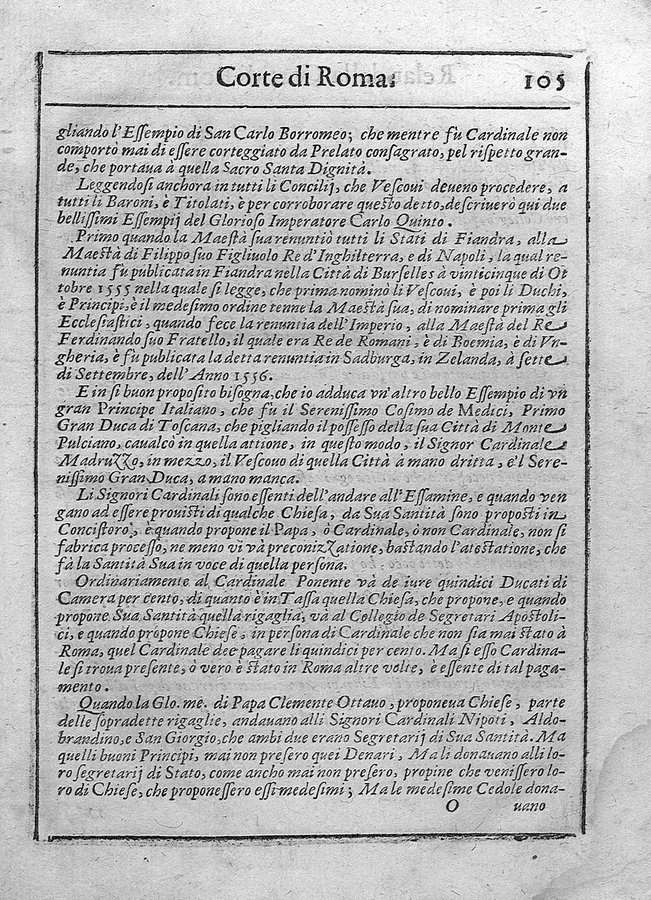 Corte di Roma. 105
gliando l'Eſſempio di San Carlo Borromeo; che mentre fù Cardinale non
comportò mai di eſſere corteggiato da Prelato conſagrato, pel riſpetto gran-
de, che portaua à quella Sacro Santa Dignità.
Leggendoſi anchora in tutti li Concilij, che Veſcoui deueno procedere, a
tutti li Baroni, è Titolati, è per corroborare queſto detto, deſcriuerò qui due
belliſſimi Eſſempij del Glorioſo Imperatore Carlo Quinto.
Primo quando la Maeſtà ſua renuntiò tutti li Stati di Fiandra, alla
Maeſtà di Filippo ſuo Figliuolo Re d'Inghilterra, e di Napoli, la qual re-
nuntia fu publicata in Fiandra nella Città di Burſelles à vinticinque di Ot
tobre 1555 nella quale ſi legge, che prima nominò li Veſcoui, è poi li Duchi,
è Principi, è il medeſimo ordine tenne la Maeſtà ſua, di nominare prima gli
Eccleſiaſtici, quando fece la renuntia dell'Imperio, alla Maeſtà del Re
Ferdinando ſuo Fratello, il quale era Re de Romani, è di Boemia, è di Vn-
gheria, è fu publicata la detta renuntia in Sadburga, in Zelanda, à ſette
di Settembre, dell'Anno 1556.
E in ſi buon propoſito biſogna, che io adduca vn'altro bello Eſſempio di vn
gran Principe Italiano, che fù il Sereniſſimo Coſimo de Medici, Primo
Gran Duca di Toſcana, che pigliando il poſſeſſo della ſua Città di Monte
Pulciano, caualcò in quella attione, in queſto modo, il Signor Cardinale
Madruzzo, in mezzo, il Veſcouo di quella Città à mano dritta, e'l Sere-
niſſimo Gran Duca, a mano manca.
Li Signori Cardinali ſono eſſenti dell'andare all'Eſſamine, e quando ven
gano ad eſſere prouiſti di qualche Chieſa, da Sua Santità ſono propoſti in
Conciſtoro, è quando propone il Papa, ò Cardinale, ò non Cardinale, non ſi
fabrica proceſſo, ne meno vi và preconizzatione, baſtando l'ateſtatione, che
fà la Santità Sua in voce di quella perſona.
Ordinariamente al Cardinale Ponente và de iure quindici Ducati di
Camera per cento, di quanto è in Taſſa quella Chieſa, che propone, e quando
propone Sua Santità quella rigaglia, và al Collegio de Segretari Apoſtoli-
ci, e quando propone Chieſe, in perſona di Cardinale che non ſia mai ſtato à
Roma, quel Cardinale dee pagare li quindici per cento. Ma ſi eſſo Cardina-
le ſi troua preſente, ò vero è ſtato in Roma altre volte, è eſſente di tal paga-
mento.
Quando la Glo. me. di Papa Clemente Ottauo, proponeua Chieſe, parte
delle ſopradette rigaglie, andauano alli Signori Cardinali Nipoti, Aldo-
brandino, e San Giorgio, che ambi due erano Segretarij di Sua Santità. Ma
quelli buoni Principi, mai non preſero quei Denari, Ma li donauano alli lo-
ro ſegretarij di Stato, come ancho mai non preſero, propine che veniſſero lo-
ro di Chieſe, che proponeſſero eſſi medeſimi; Ma le medeſime Cedole dona-
O uano